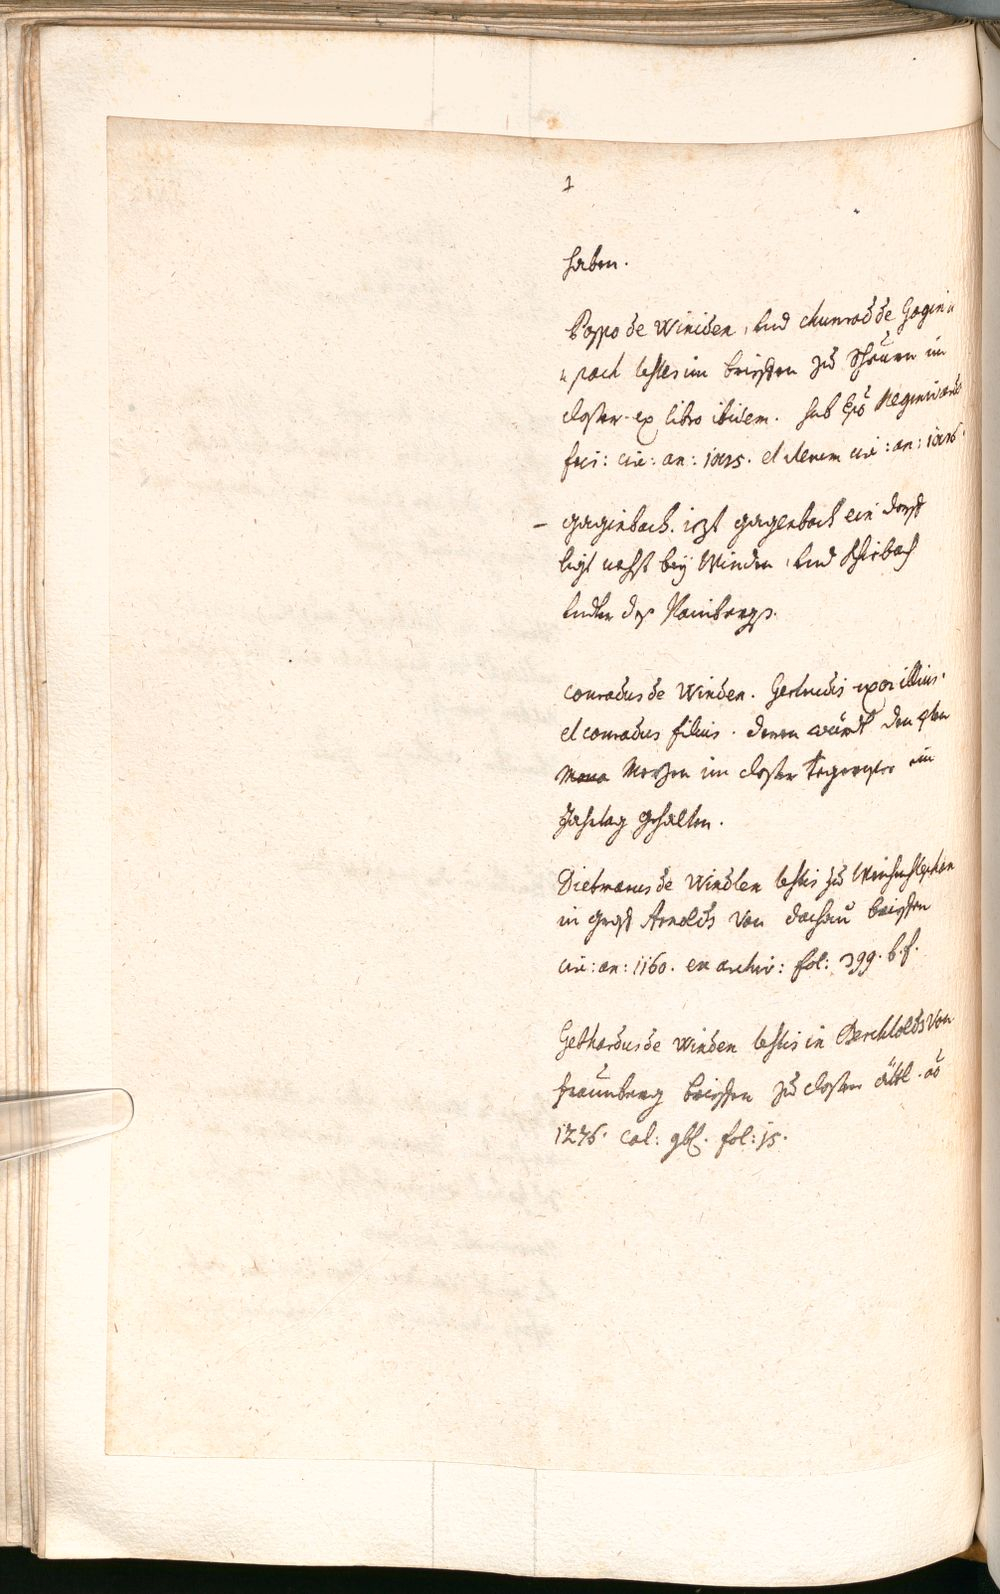 1
haben.
Poppo de Winiden, und chunrad de Gagin„
„pach testes im brieffen zu Scheurn im
closter. ex libro ibidem. sub Epō Meginwardo
fris: cir: an: et iterum cir: an:
– gaginbach. izt gagenbach ein dorff
ligt nechst bey Winden, und
under des
conradus de Winden. Gertrudis uxor illius.
et conradus filius. deren würdt den 9ten
Merzen im closter Tegernsee ein
Jahrtag gehalten.
Dietmarus de Windten testis zu Weichenstephan
in graff Arnolds von dachau brieffen
cir: an: 1160. ex archiv: fol: 399. b. f.
Gebhardus de Winden testis in Berchtolds von
fraunberg brieffen zu closter ättl. aō
1276. col: gbl. fol: 15.